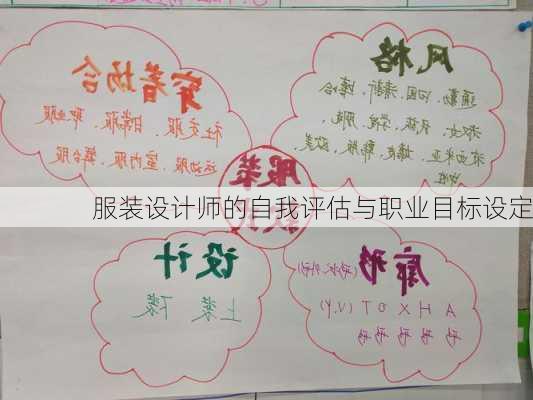 穿着场合
社交服、日常服、职业服
运动服、室内服、舞台服
风格
通勤、田园、清新
淑女、民族、学院
波西米亚、韩版、欧美
服装
服装设计师的自我评估与职业目标设定
设计
上装 下装
廓形
A H X O T (V,Y)
形 形 形 形